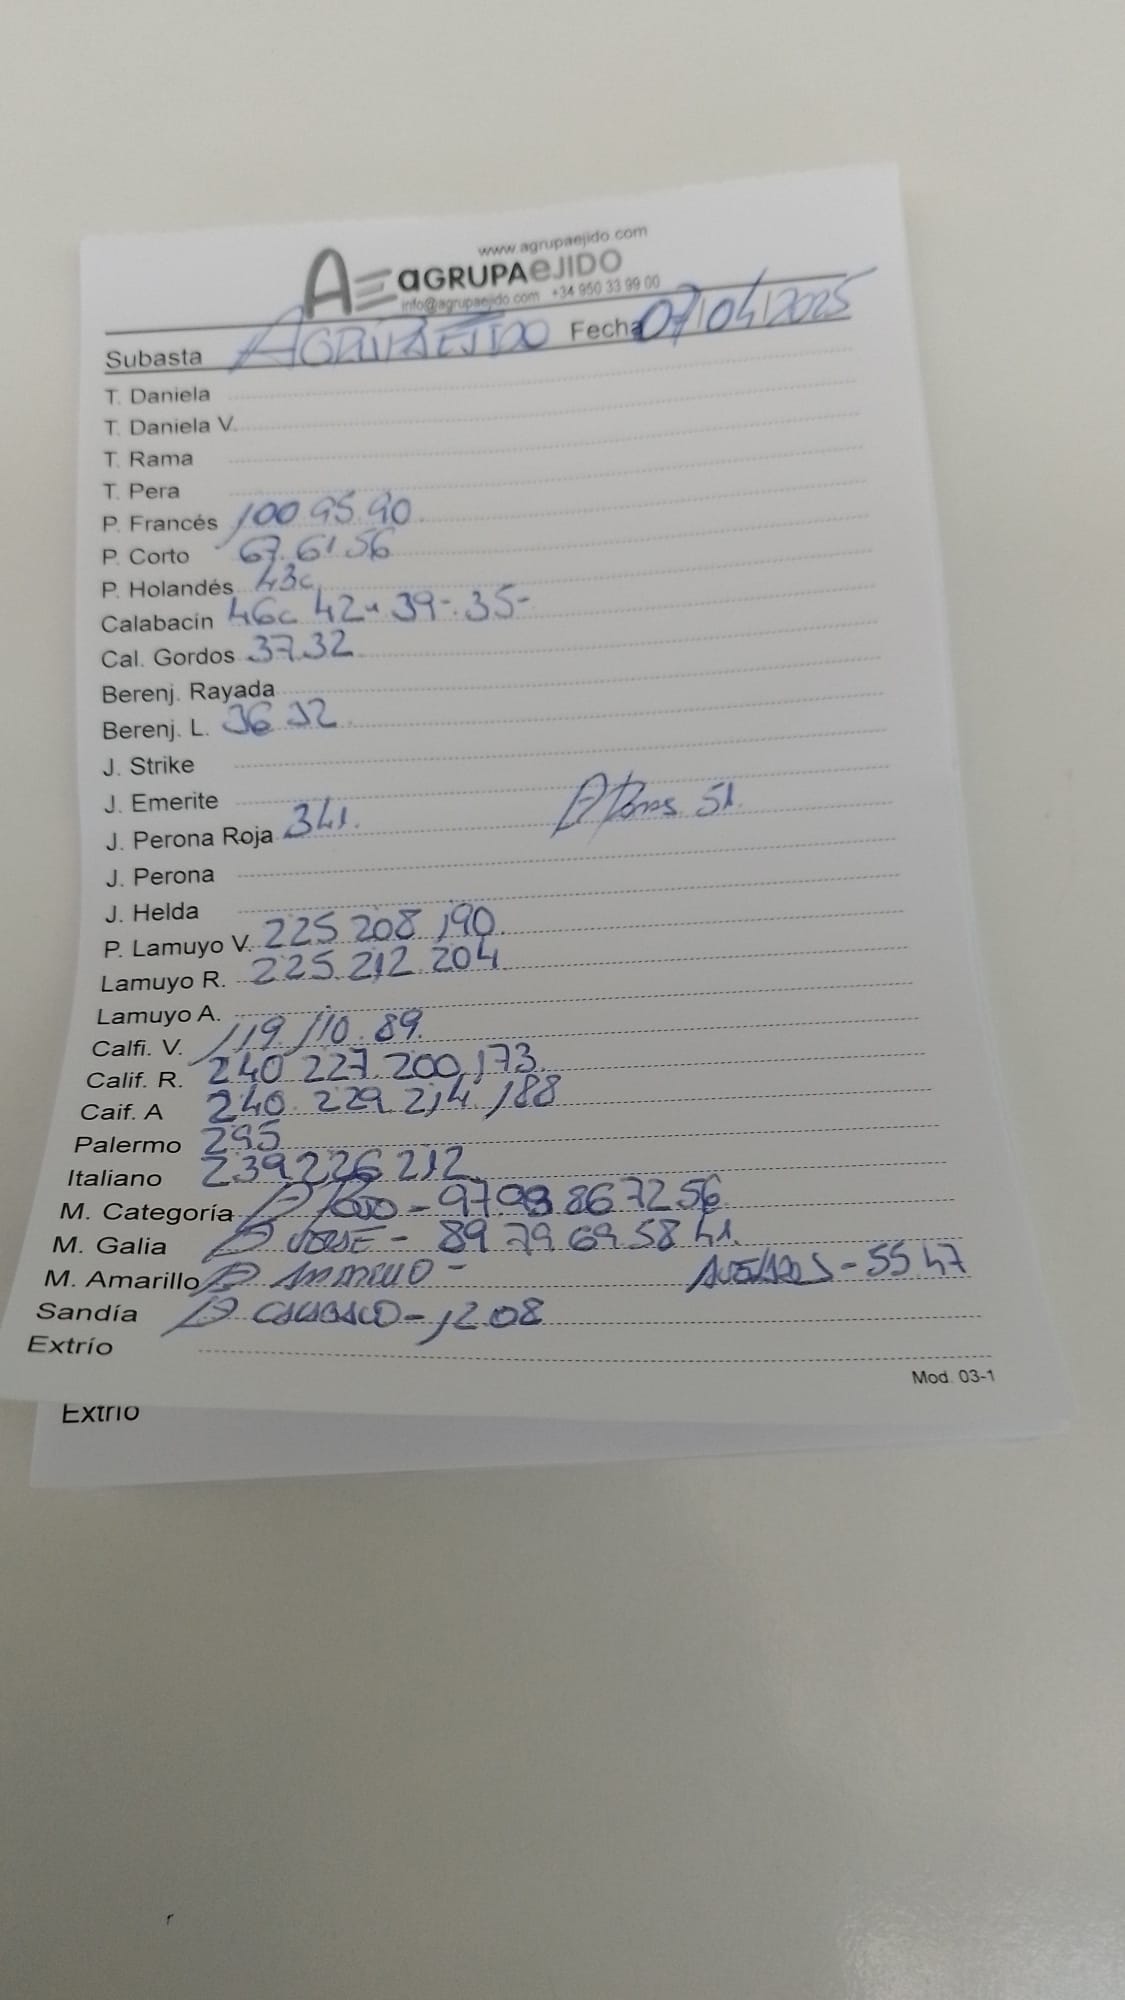 www.agrupaejido.com
AE aGRUPAeJIDO
info@agrupaejido.com +34 950 33 99 00
Subasta AGRUPAEJIDO Fecha 07/04/2025
T. Daniela
T. Daniela V.
T. Rama
T. Pera
P. Francés 100 95 90.
P. Corto 67. 61 56
P. Holandés 43c
Calabacín 46c 42- 39-. 35-
Cal. Gordos 37.32
Berenj. Rayada
Berenj. L. 36 32
J. Strike
J. Emerite
J. Perona Roja 341. 51.
J. Perona
J. Helda
P. Lamuyo V. 225 208 190.
Lamuyo R. 225. 212. 204
Lamuyo A.
Calfi. V. 119. 110. 89.
Calif. R. 240 227. 200, 173.
Caif. A 240. 229. 214. 188
Palermo 295
Italiano 239 226 212
M. Categoría - 97 86 72 56
M. Galia - 89 79 69 58 41.
M. Amarillo AMARILLO - - 55 47
Sandía CALABACO - 1,208
Extrío
Mod. 03-1
Extrío